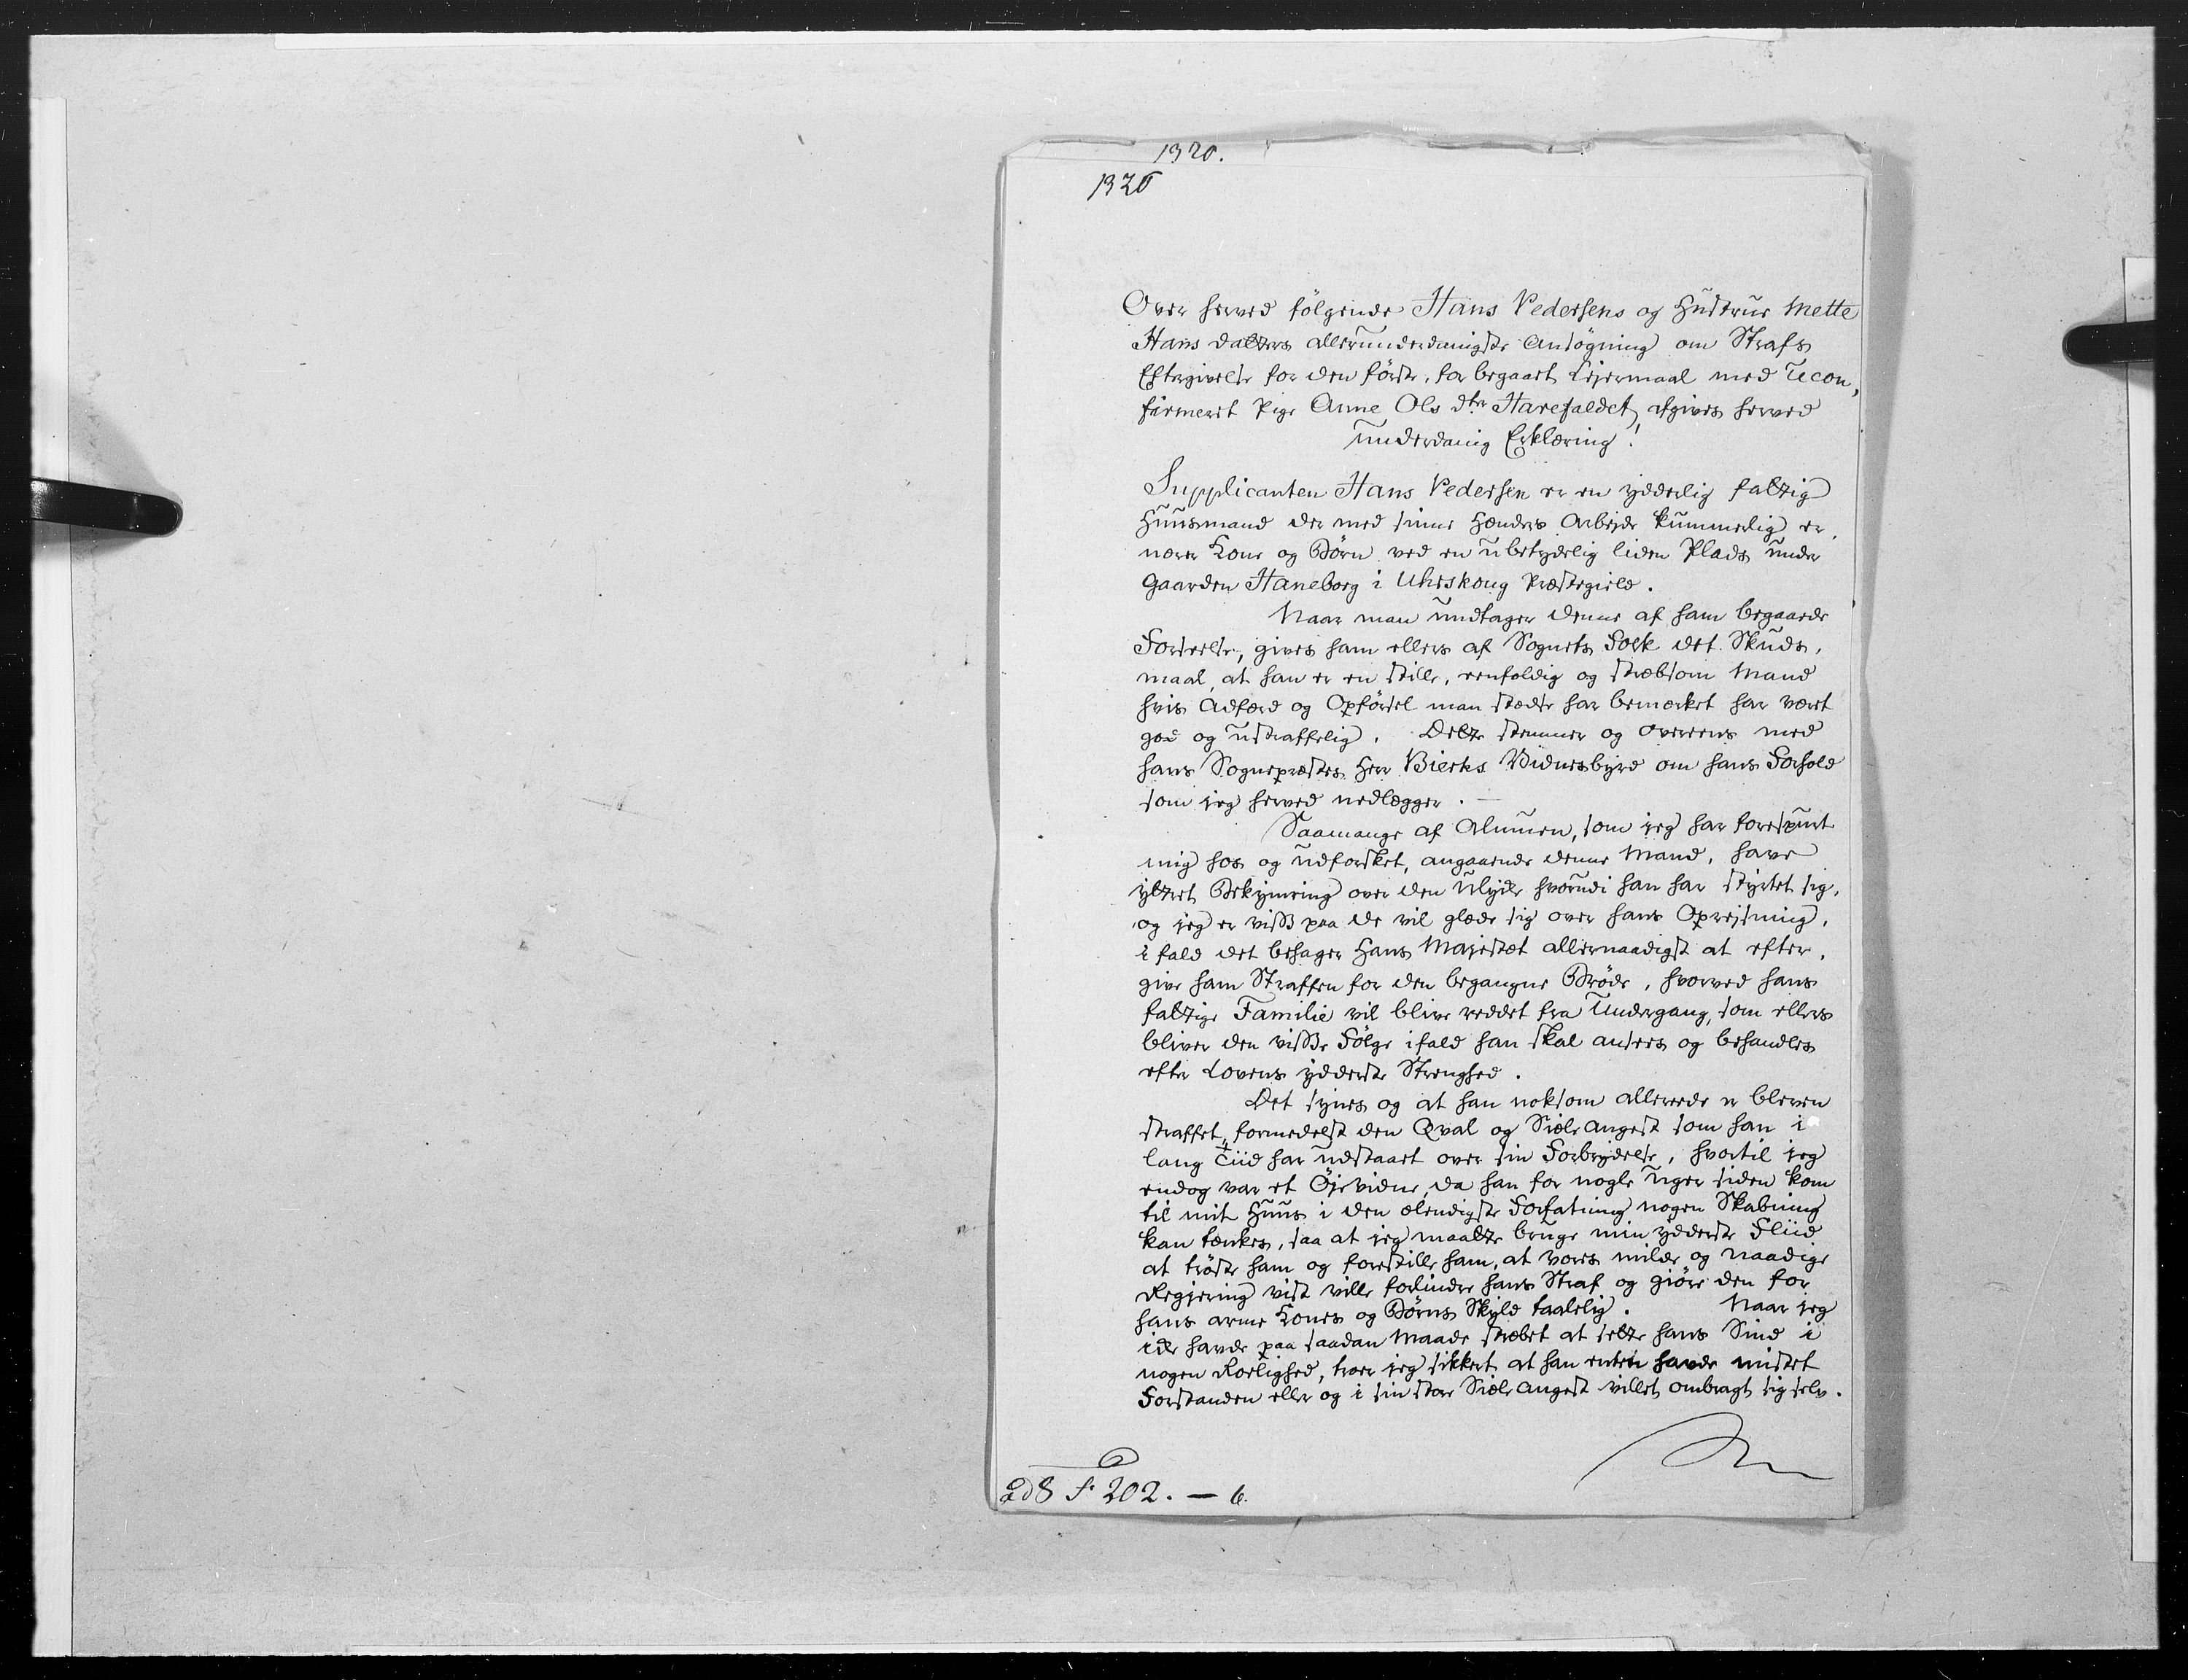 1320.
1320
Over herved fölgende Hans Pedersens og Hustrue Mette
Hans datters allerunderdanigste Ansögning om Straffs
Eftergivelse for den förste, for begaaet Lejermaal med Ucon,
firmeret Pige Anne Ols dtr Harefaldet, afgives herved
underdanig Erklæring!
Supplicanten Hans Pedersen er en yderlig fattig
Huusmand der med sine Hænders Arbejde kummerlig er,
nærer Kone og Børn ved en ubetydelig liden Plads under
Gaarden Haneborg i Uhrskoug Præstegield.
Naar man undtager denne af ham begaaede
Forseelse, gives ham ellers af Sognets Folk det Skuds,
maal, at han er en stille, eenfoldig og stræbsom Mand
hvis Adfærd og Opførsel man stædse har bemærket har været
god og ustraffelig. Dette stemmer og overeens med
hans Sognepræstes Herr Bierks Vidnesbyrd om hans Forhold
som jeg herved nedlægger.
Saamange af Almuen, som jeg har forespurt
mig hos og udforsket, angaaende denne Mand, have
yttret Bekymring over den Ulykke hvorudi han har styrtet sig,
og jeg er viss paa de vil glæde sig over hans Oprejsning,
i fald det behager Hans Majestæt allernaadigst at efter,
give ham Straffen for den begangne Brøde, hvorved hans
fattige Familie vil blive reddet fra Undergang, som ellers
bliver den visse Følge ifald han skal ansees og behandles
efter Lovens ydderste Strenghed.
Det synes og at han noksom allerede er bleven
straffet, formedelst den Qval og Siæle Angest som han i
lang Tiid har udstaaet over sin Forbrydelse, hvortil jeg
endog var et Øjevidne, da han for nogle Uger siden kom
til mit Huus i den elendigste Forfatning nogen Skabning
kan tænkes, saa at jeg maatte bruge min ydderste Fliid
at trøste ham og forestille ham, at vores milde og naadige
Regiering vist ville forlindre hans Straf og giøre den for
hans arme Kones og Børns Skyld taalelig. Naar jeg
ikke havde paa saadan Maade stræbet at sette hans Sind i
nogen Roelighed, troer jeg sikkert at han enten havde mistet
Forstanden eller og i sin store Siæle Angest villet ombragt sig selv.
F 202. — 6.